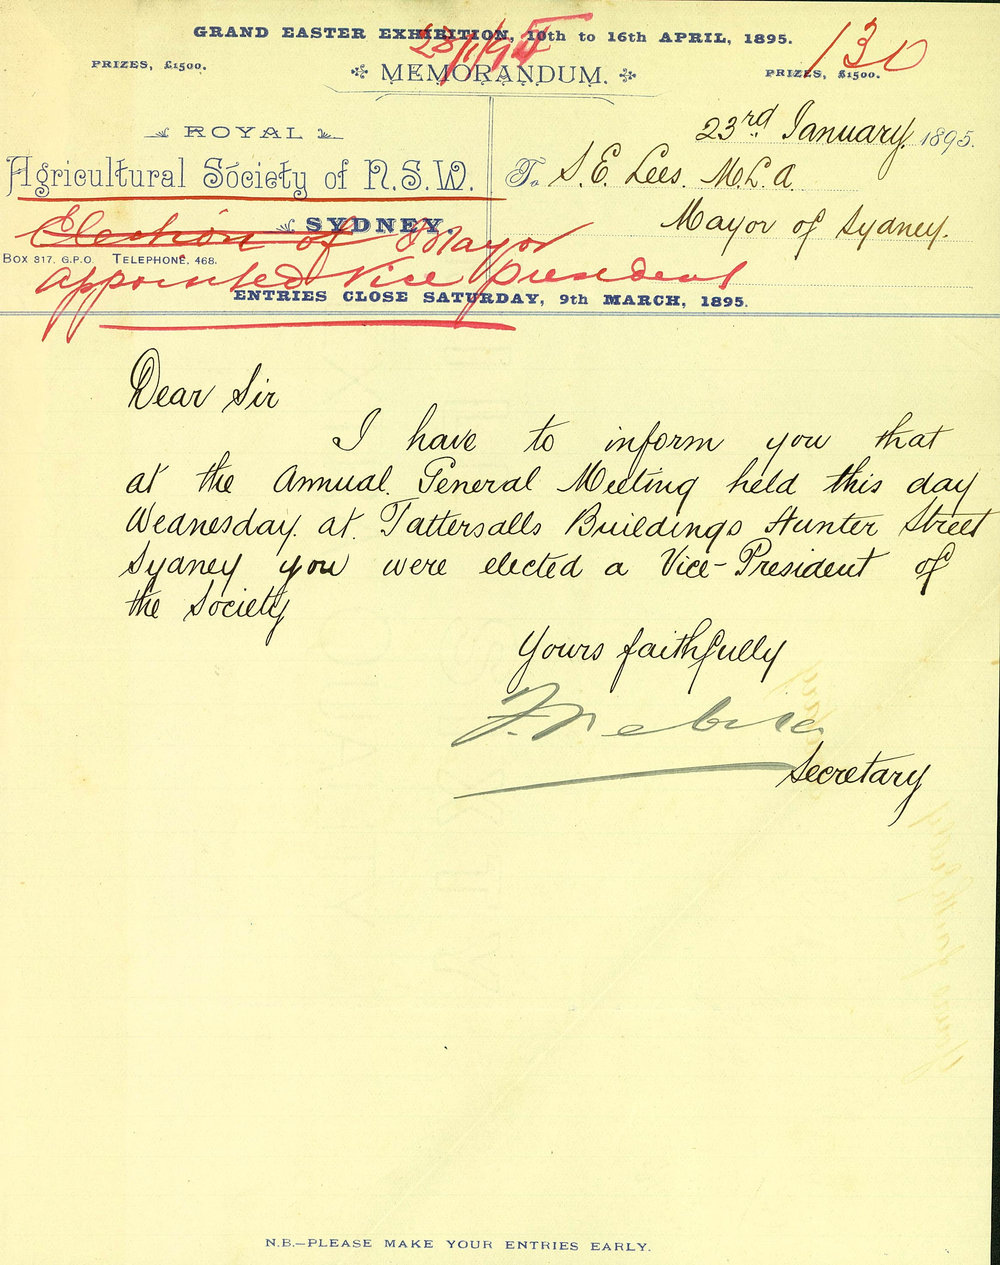 GRAND EASTER EXHIBITION, 10th to 16th APRIL, 1895.
28/1/95
130
PRIZES, £1500.
MEMORANDUM.
PRIZES, £1500.
23rd January 1895.
ROYAL
Agricultural Society of N.S.W.
To S. E. Lees. M.L.A.
SYDNEY.
Mayor of Sydney.
Election of Mayor
BOX 817. G.P.O. TELEPHONE, 468.
appointed Vice president
ENTRIES CLOSE SATURDAY, 9th MARCH, 1895.
Dear Sir
I have to inform you that
at the Annual General Meeting held this day
Wednesday at Tattersalls Buildings Hunter Street
Sydney you were elected a Vice-President of
the Society
Yours faithfully
F. Webster
Secretary
N.B.—PLEASE MAKE YOUR ENTRIES EARLY.